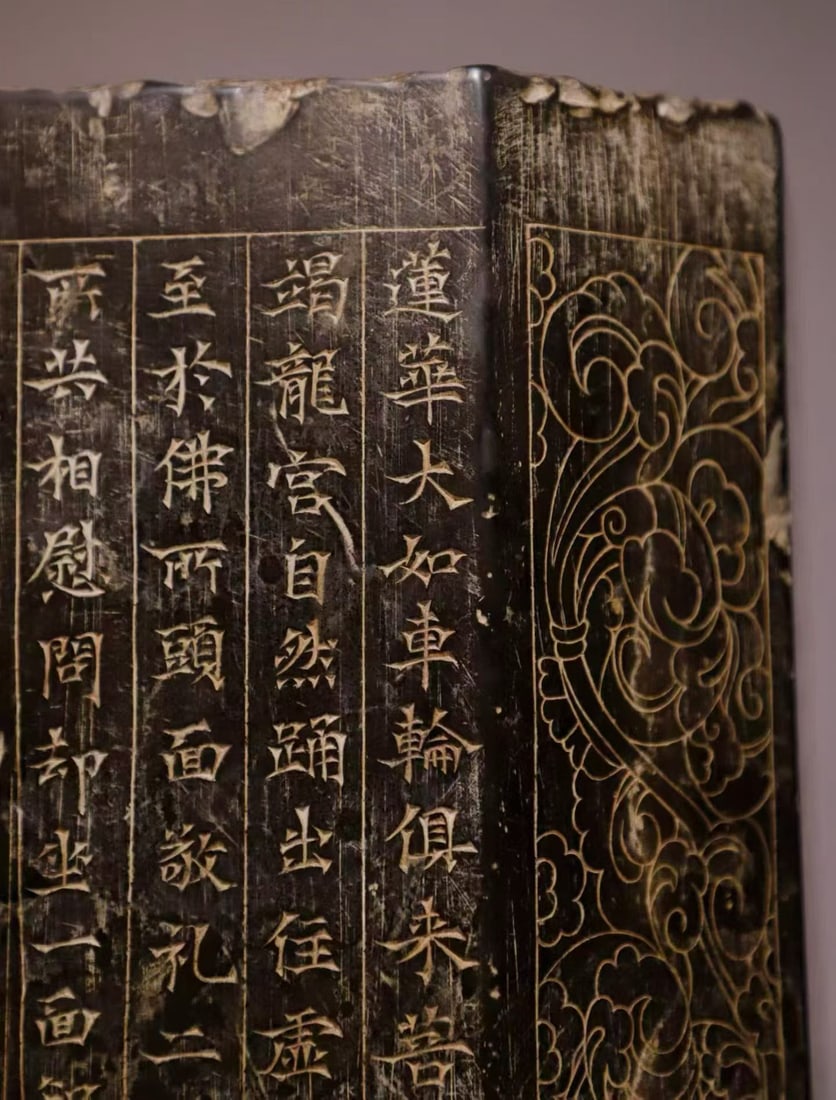 蓮華大如車輪俱来菩
竭龍宮自然踊出住虛
至於佛所頭面敬礼二
所共相慰問却坐一面